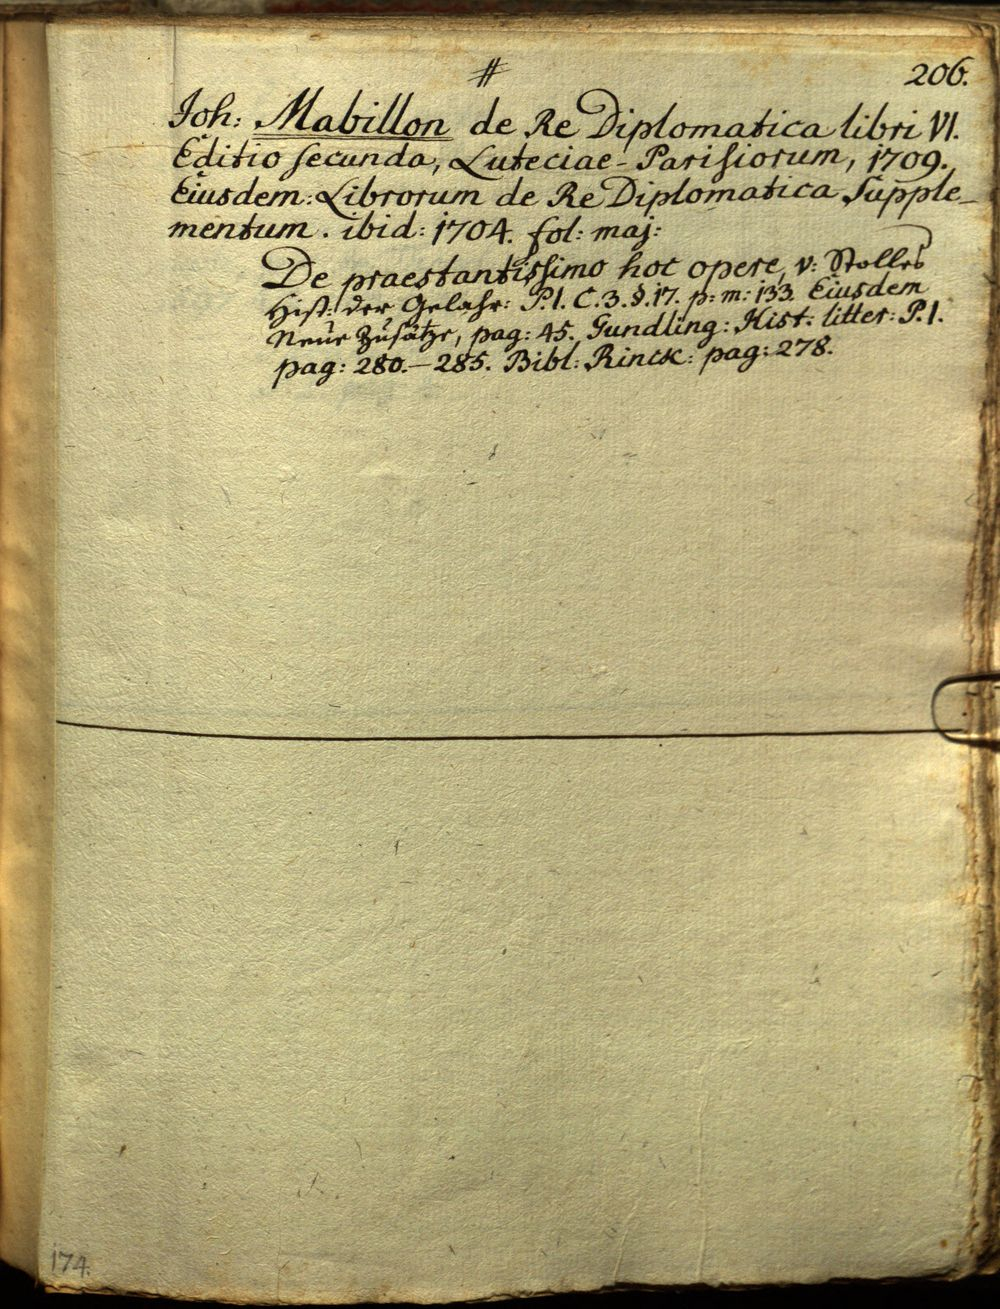 #
206.
Joh: Mabillon de Re Diplomatica libri VI.
Editio secunda, Luteciae-Parisiorum, 1709.
Eiusdem: Librorum de Re Diplomatica Supple-
mentum. ibid: 1704. fol: maj:
De praestantissimo hoc opere, v: Stolles
Hist: der Gelahr: P.I. C.3.§.17. p: m: 133. Eiusdem
Neue Zusätze, pag: 45. Gundling: Hist: litter: P.I.
pag: 280.–285. Bibl: Rinck: pag: 278.
174.